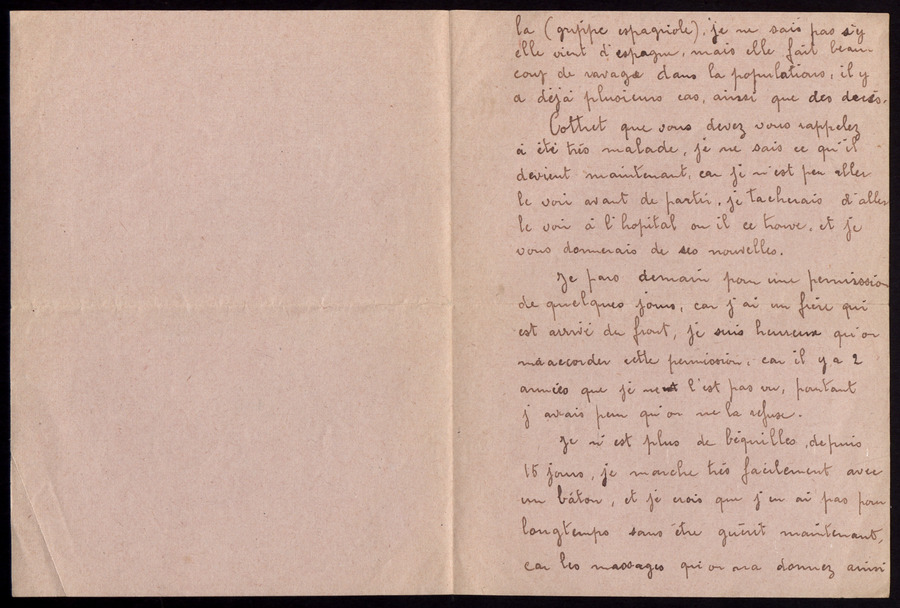 la (grippe espagniole), je ne sais pas s'y
elle vient d'espagne, mais elle fait beau-
coup de ravage dans la populations, il y
a déjà plusieurs cas, ainsi que des decès.
Cottret que vous devez vous rappelez
à été très malade, je ne sais ce qu'il
devient maintenant, car je n'est peu aller
le voir avant de partir, je tacherais d'aller
le voir à l'hopital ou il ce trouve, et je
vous donnerais de ses nouvelles.
Je pars demain pour une permission
de quelques jours, car j'ai un frère qui
est arrivé du front, je suis heureux qu'on
m'a accorder cette permission, car il y a 2
années que je ne l'est pas vu, pourtant
j'avais peur qu'on me la refuse.
Je n'est plus de béquilles, depuis
15 jours, je marche très facilement avec
un bâton, et je crois que j'en ai pas pour
longtemps sans être guérit maintenant,
car les massages qu'on m'a donnez ainsi